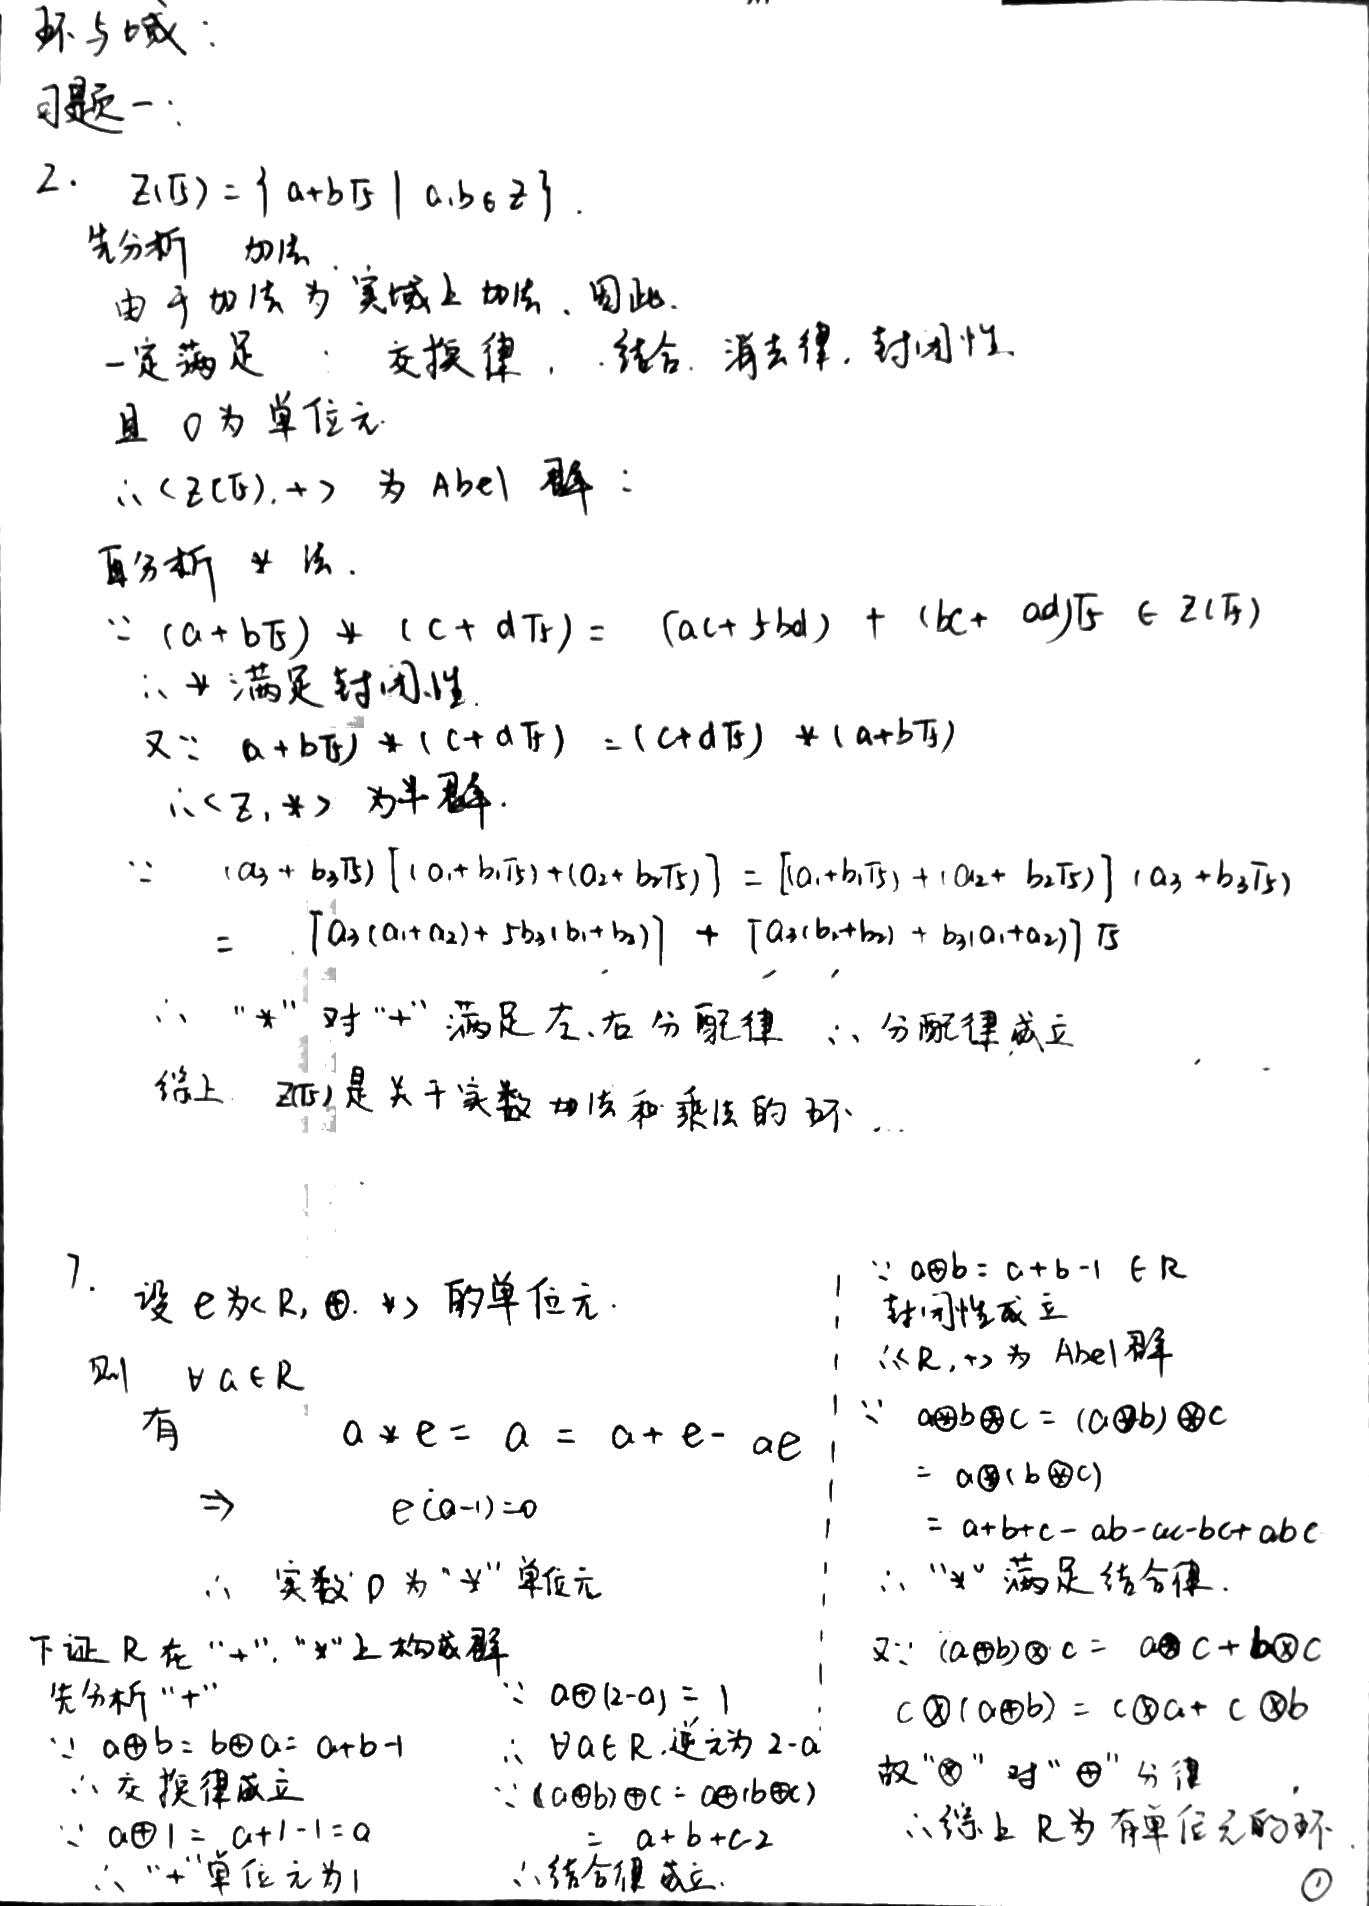 环与域：
习题一：
2. Z(√5) = { a+b√5 | a,b∈Z }.
先分析 加法.
由于加法为实域上加法、因此.
一定满足 : 交换律, 结合. 消去律, 封闭性
且 0为单位元.
∴ <Z(√5), +> 为 Abel 群 :
再分析 * 法.
∵ (a+b√5) * (c+d√5) = (ac+5bd) + (bc+ad)√5 ∈ Z(√5)
∴ * 满足封闭性.
又∵ a+b√5) * (c+d√5) = (c+d√5) * (a+b√5)
∴ <Z, *> 为半群.
∵ (a₃+b₃√5)[(a₁+b₁√5)+(a₂+b₂√5)] = [(a₁+b₁√5)+(a₂+b₂√5)](a₃+b₃√5)
= [a₃(a₁+a₂)+5b₃(b₁+b₂)] + [a₃(b₁+b₂)+b₃(a₁+a₂)]√5
∴ "*" 对 "+" 满足左、右分配律 ∴ 分配律成立
综上 Z(√5)是关于实数加法和乘法的环
7. 设 e为<R, ⊕. *> 的单位元.
则 ∀a∈R
有 a * e = a = a + e - ae
⇒ e(a-1)=0
∴ 实数 0 为 "*" 单位元
下证 R 在 "+", "*" 上构成群
先分析 "+"
∵ a⊕b = b⊕a = a+b-1
∴ 交换律成立
∵ a⊕1 = a+1-1=a
∴ "+" 单位元为1
∵ a⊕(2-a) = 1
∴ ∀a∈R, 逆元为 2-a
∵ (a⊕b)⊕c = a⊕(b⊕c)
= a+b+c-2
∴ 结合律成立.
∵ a⊕b = a+b-1 ∈R
封闭性成立
∴ <R, +> 为 Abel 群
∵ a⊛b⊛c = (a⊛b)⊛c
= a⊛(b⊛c)
= a+b+c-ab-ac-bc+abc
∴ "*" 满足结合律.
又∵ (a⊕b)⊗c = a⊗c + b⊗c
c⊗(a⊕b) = c⊗a + c⊗b
故 "⊗" 对 "⊕" 分律
∴ 综上 R为有单位元的环.
①